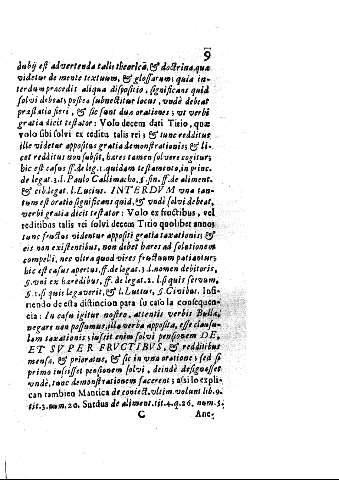 9
dubij est advertenda talis theorica, & doctrina, quæ
videtur de mente textuum, & glossarum; quia in-
terdum præcedit aliqua dispositio, significans quid
solvi debeat; postea subnectitur locus, undè debeat
præstatio fieri, & sic sunt duæ orationes; ut verbi
gratia dicit testator: Volo decem dati Titio, quæ
volo sibi solvi ex reditu talis rei; & tunc redditus
ille videtur appositus gratia demonstrationis; & li-
cet redditus non subsit, hæres tamen solvere cogitur;
hic est casus ff. de leg. 1. quidam testamento, in princ.
de legat. 3. l. Paulo Callimacho, §. fin. ff. de aliment.
& cib. legat. l. Lucius. INTERDUM una tan-
tum est oratio significans quid, & undè solvi debeat,
verbi gratia dicit testator: Volo ex fructibus, vel
redditibus talis rei solvi decem Titio quolibet anno;
tunc fructus videntur appositi gratia taxationis; &
eis non existentibus, non debet hæres ad solutionem
compelli, nec ultra quod vires fructum patiantur;
hic est casus apertus, ff. de legat. 3. l. nomen debitoris,
§. uni ex hæredibus, ff. de legat. 2. l. si quis servum,
§. 1. si quis legaverit, & l. Luttus, §. Civibus. Infi-
riendo de esta distincion para su caso la consequen-
cia: In casu igitur nostro, attentis verbis Bullæ,
negare non possumus, illa verba apposita, esse clausu-
lam taxationis; iussit enim solvi pensionem DE,
ET SUPER FRUCTIBUS, & redditibus
mensæ, & prioratus, & sic in una oratione; sed si
primo iussisset pensionem solvi, deindè designasset
undè, tunc demonstrationem facerent; assi lo expli-
can tambien Mantica de coniect. ultim. volunt lib. 9.
tit. 3. num. 20. Surdus de aliment. tit. 4. q. 26. num. 5.
C Anc-